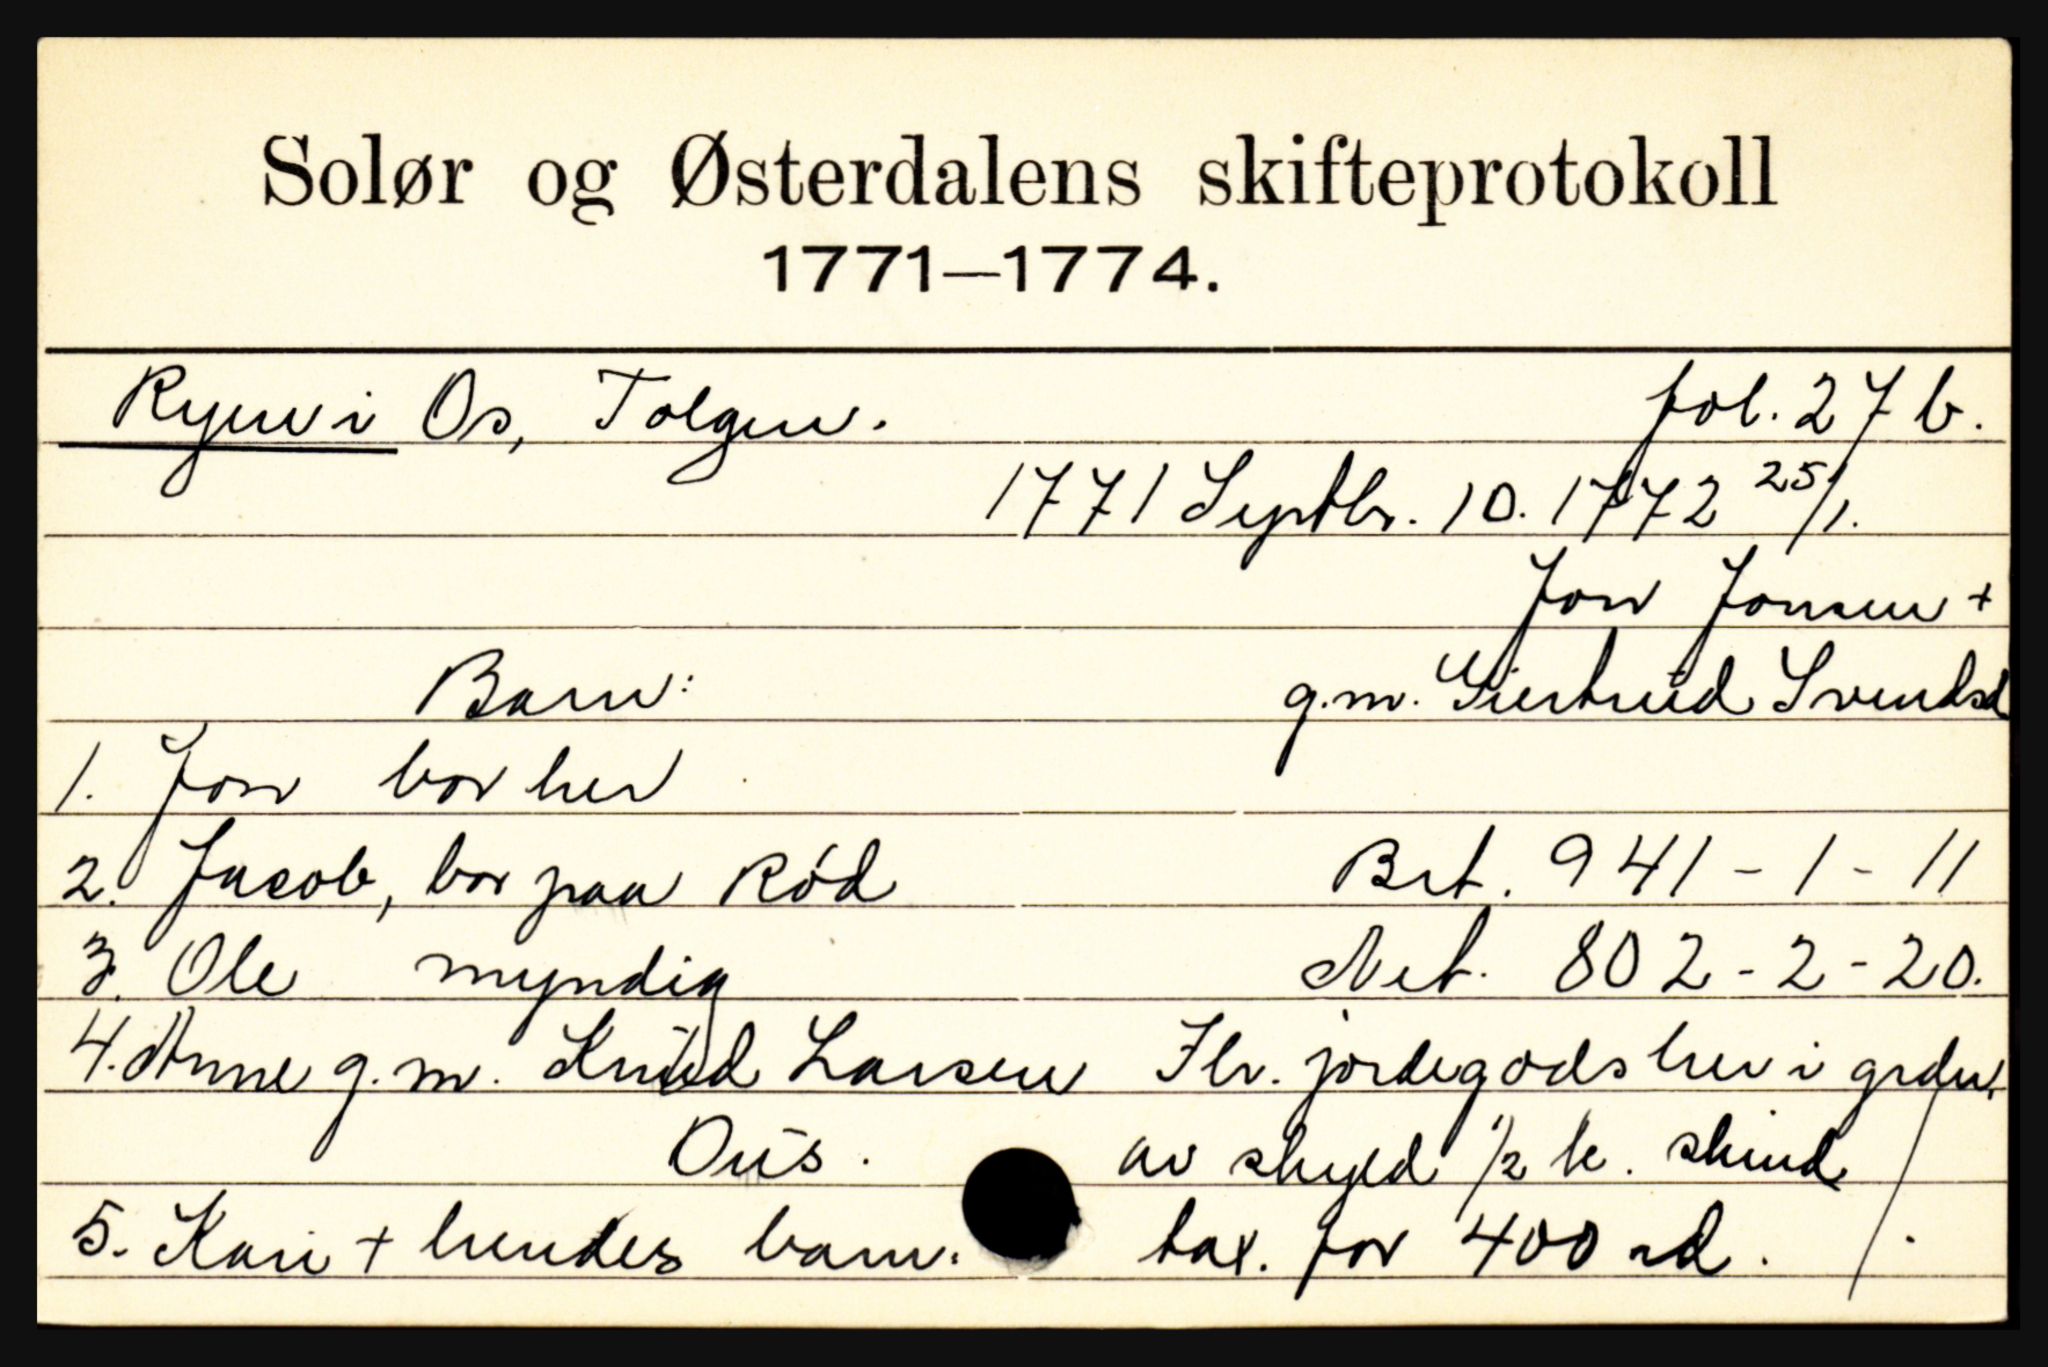 Solør og Østerdalens skifteprotokoll
1771—1774.
Ryen i Os, Tolgen. fol. 27 b.
1771 Septbr. 10. 1772 25/1.
Jon Jonsen +
Barn: g.m. Giertrud Svendsd
1. Jon bor her
2. Jacob, bor paa Rød Brt. 941-1-11
3. Ole myndig Net. 802-2-20.
4. Anne g.m. Knud Larsen Ihr. jordegods her i grden
Ous. av skyld 1/2 k. skind
5. Kari + hendes barn. tax. for 400 rd. /.